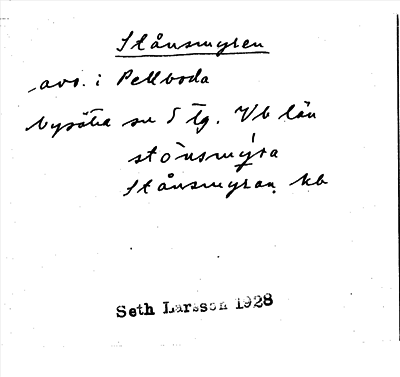 Stånsmyren
avs. i Pellboda
Bygdeå sn S tg. Vb län
stònsmýra
Stånsmyran kb
Seth Larsson 1928